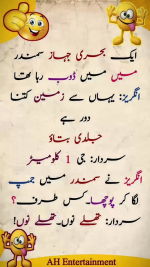 ایک بحری جہاز سمندر
میں میں ڈوب رہا تھا
انگریز: یہاں سے زمین کتنا
دور ہے
جلدی بتاؤ
سردار: جی 1 کلومیٹر
انگریز نے سمندر میں جمپ
لگا کر پوچھا۔کس طرف؟
سردار: تھلے نوں۔تھلے نوں!
AH Entertainment